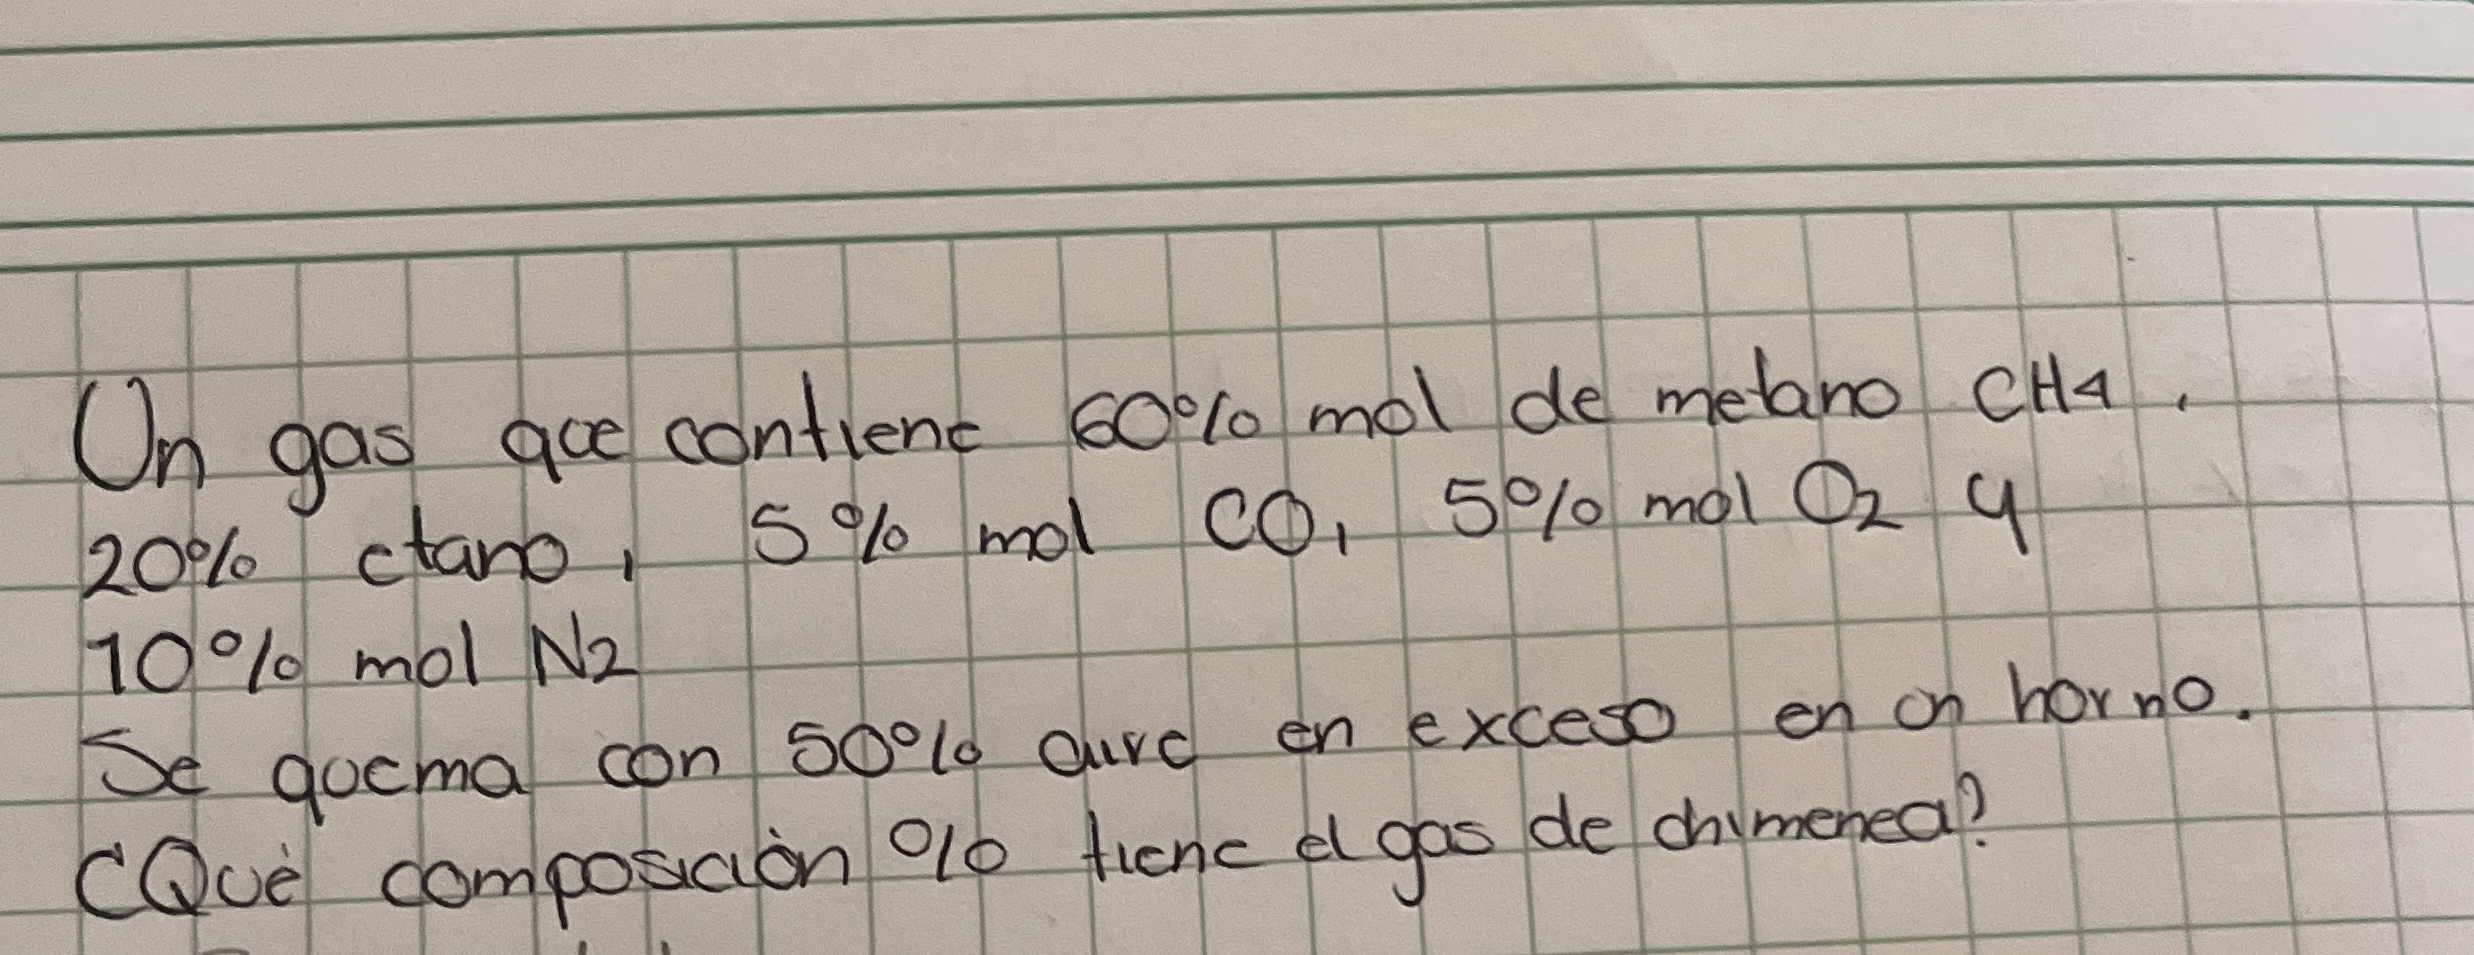 Un gas que contiene 60% mol de metano CH4,
20% etano, 5% mol CO, 5% mol O2 y
10% mol N2
Se quema con 50% aire en exceso en un horno.
¿Qué composición % tiene el gas de chimenea?